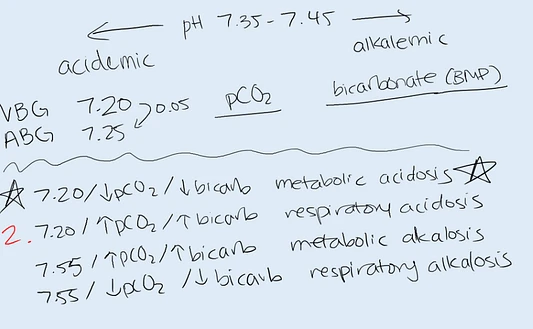 pH 7.35-7.45
acidemic
alkalemic
VBG 7.20
ABG 7.25
0.05
pCO₂
bicarbonate (BMP)
7.20/↓pCO₂/↓bicarb metabolic acidosis
2. 7.20/↑pCO₂/↑bicarb respiratory acidosis
7.55/↑pCO₂/↑bicarb metabolic alkalosis
7.55/↓pCO₂/↓bicarb respiratory alkalosis